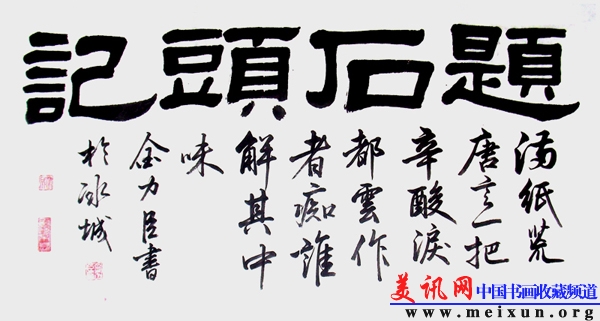 題石頭記
滿紙荒
唐言一把
辛酸淚
都雲作
者痴誰
解其中
味
金力臣書
於冰城
美讯网中国书画收藏频道
www.meixun.org